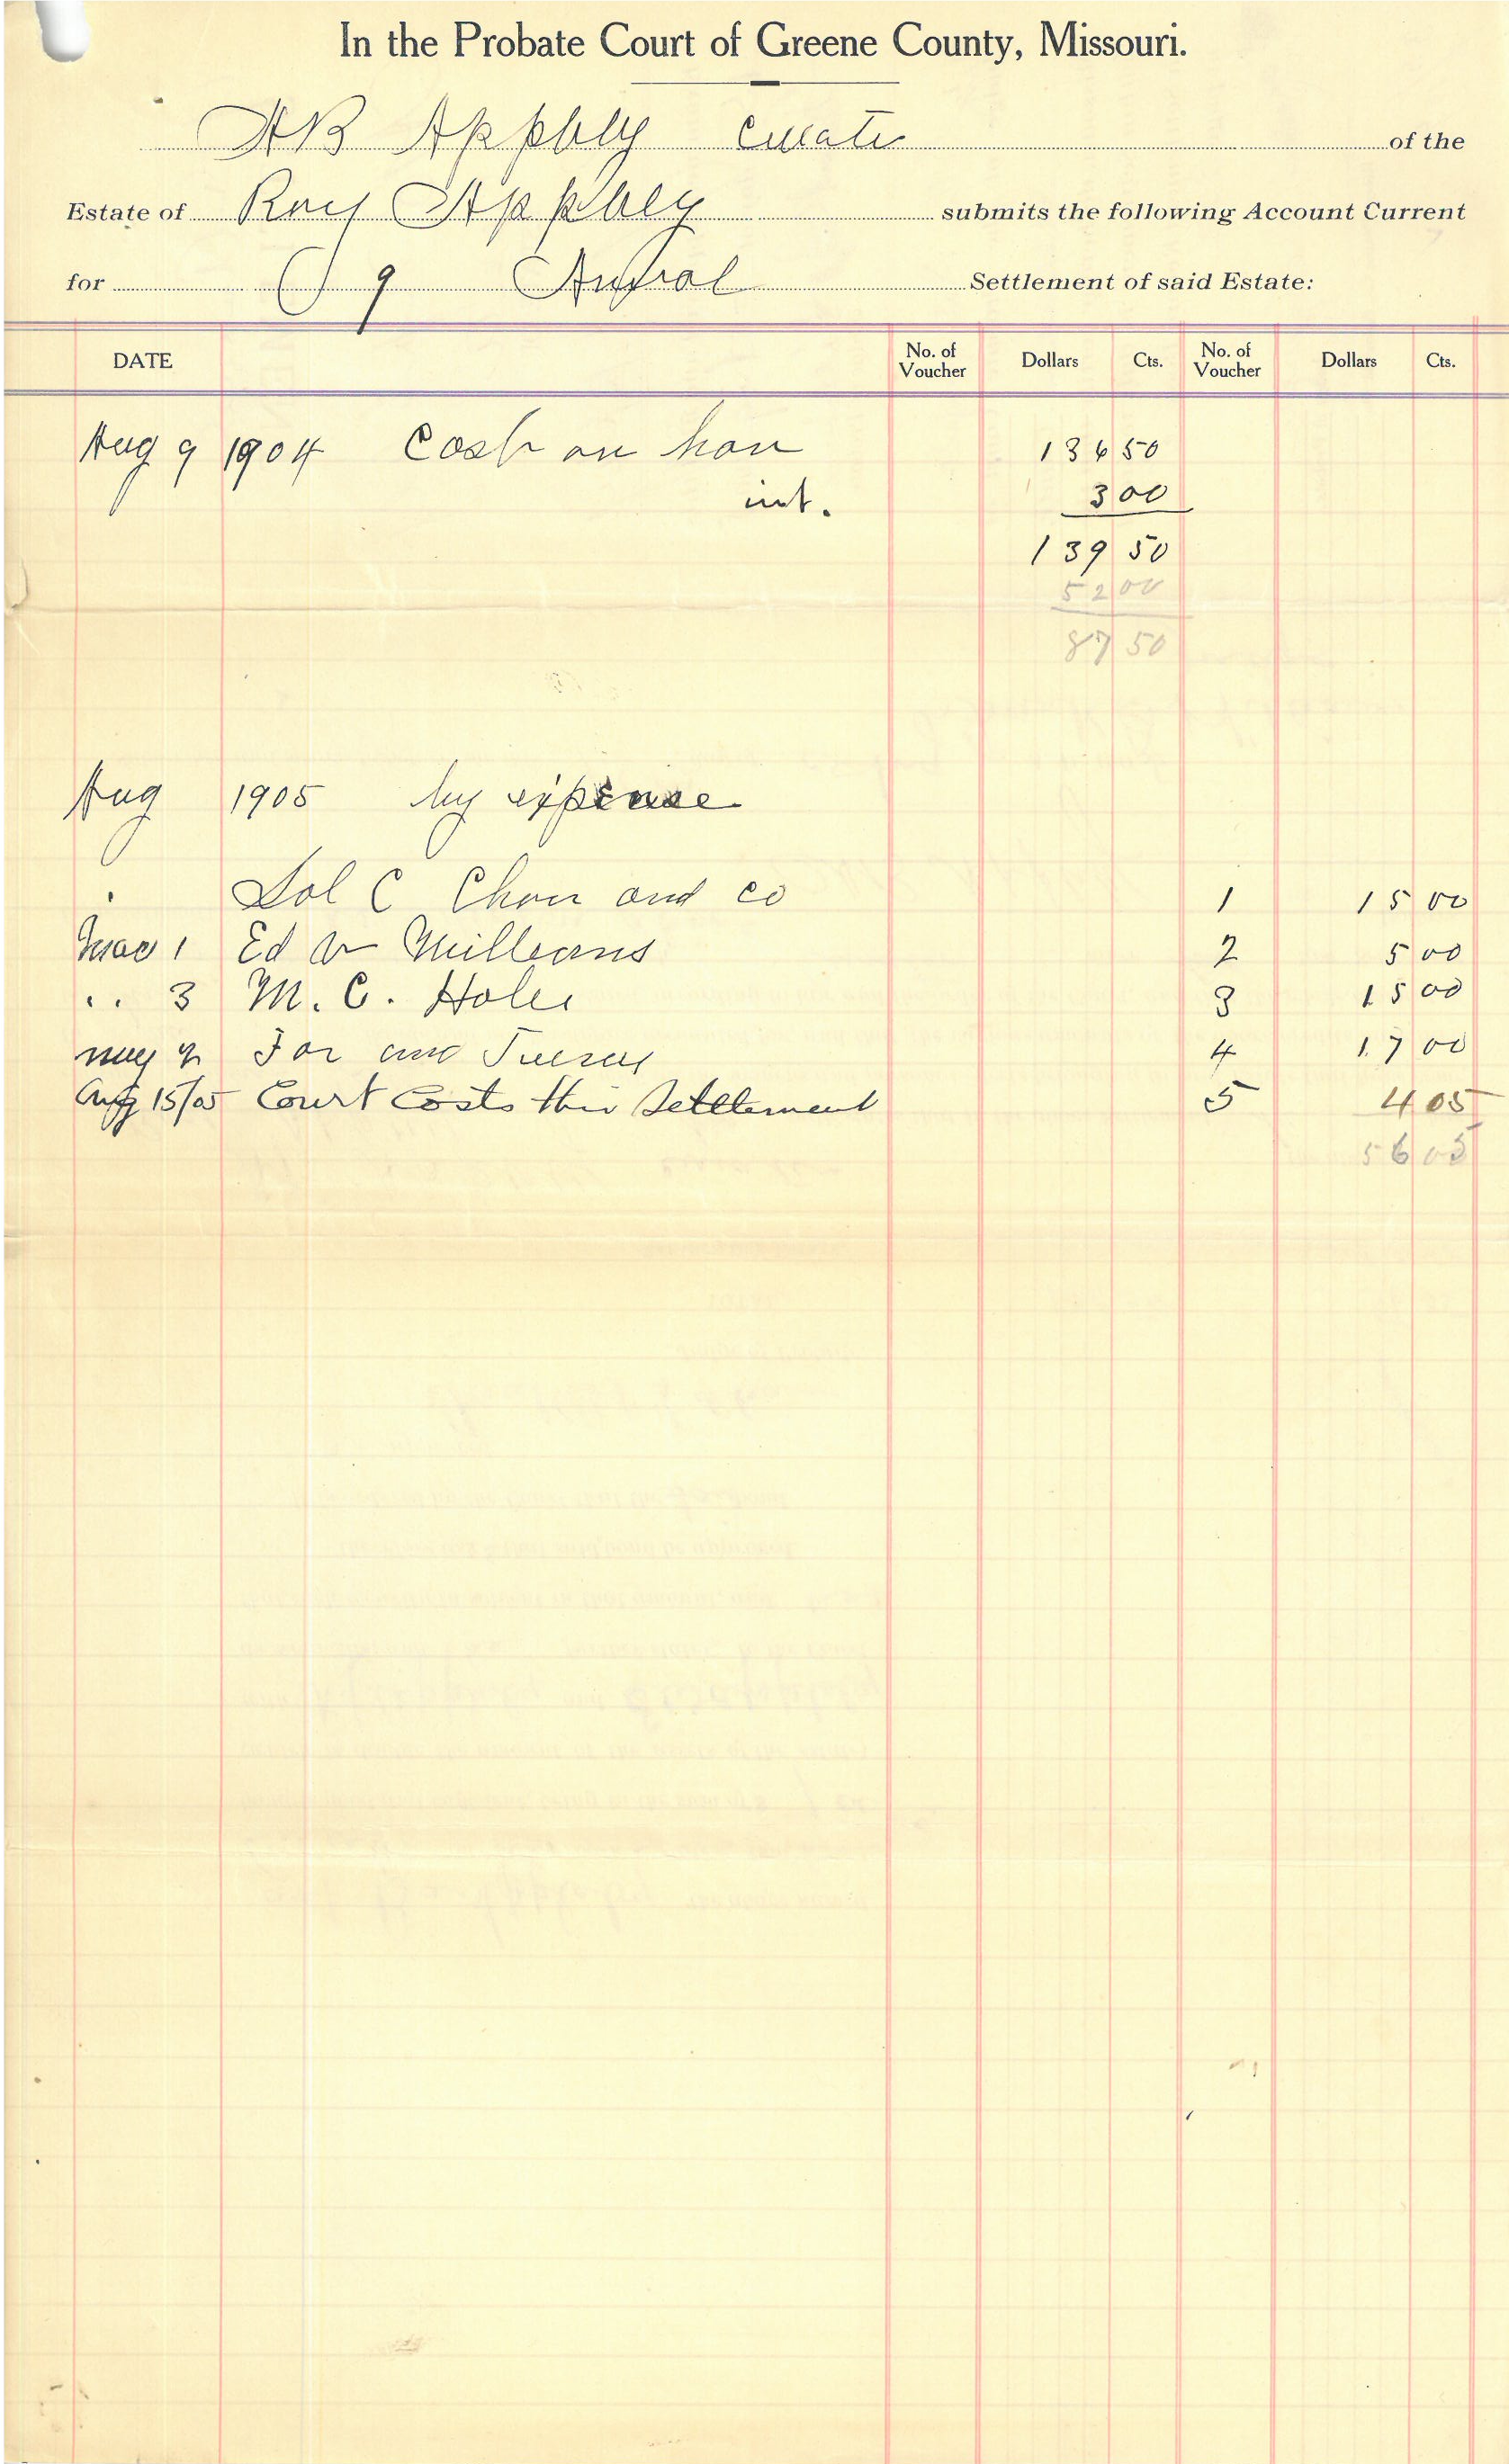 In the Probate Court of Greene County, Missouri.
AB Appbly of the
Estate of Roy Appbley submits the following Account Current
for 9 Settlement of said Estate:
DATE No. of Voucher Dollars Cts. No. of Voucher Dollars Cts.
Aug 9 1904 Cash on han 136 50
int. 3 00
139 50
52 00
87 50
Aug 1905 by expense
Sol C and co 1 15 00
1 Ed 2 5 00
.. 3 M. C. 3 15 00
may For 4 17 00
Aug 15/05 Court Costs this Settlement 5 4 05
56 05